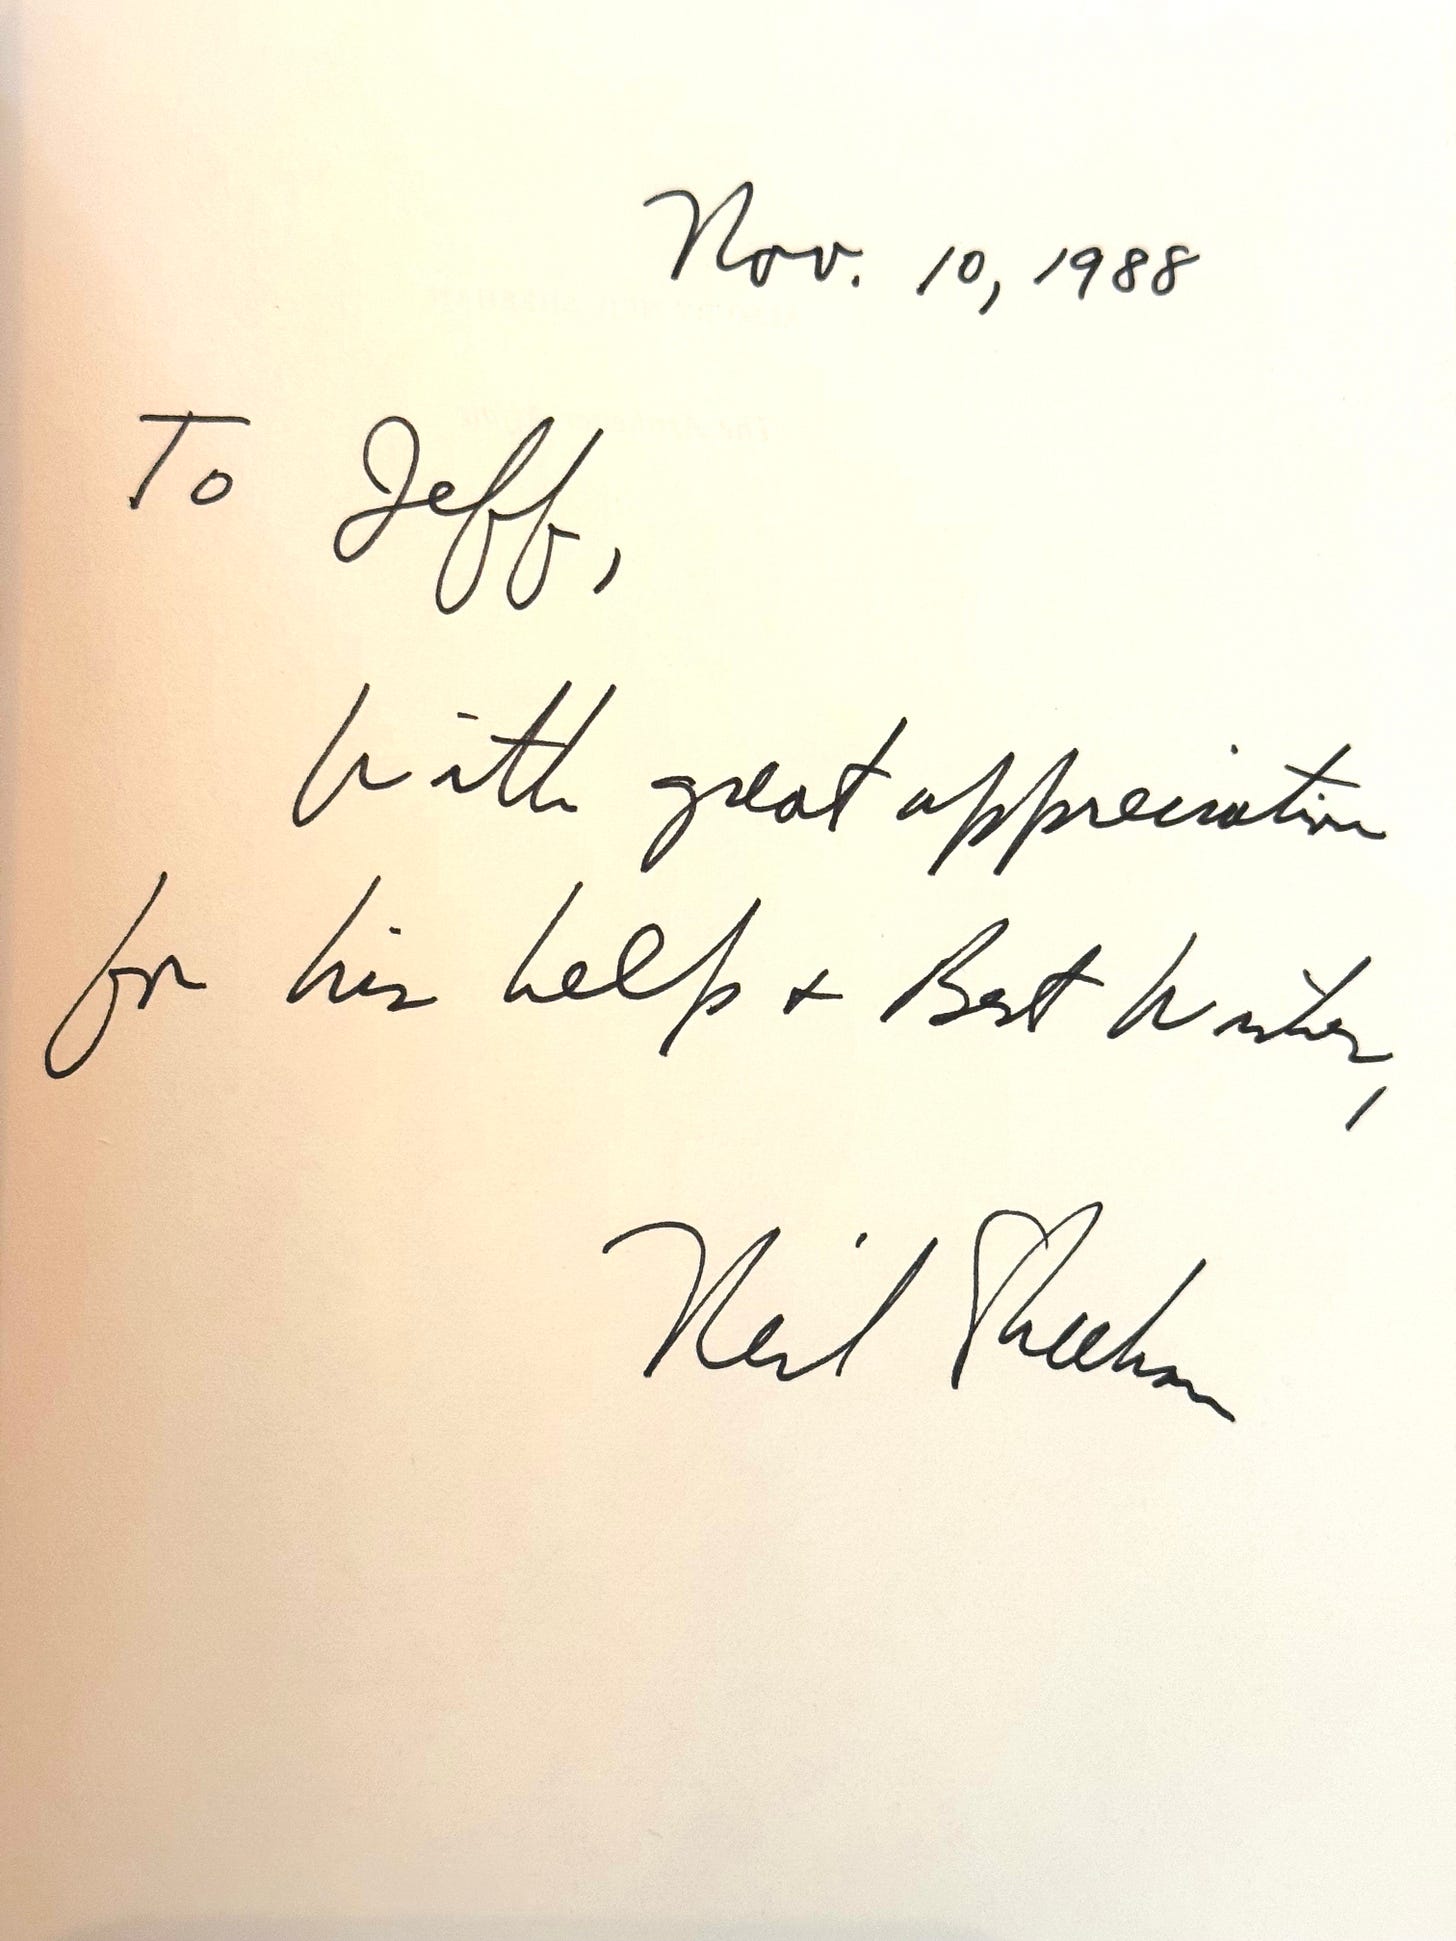 Nov. 10, 1988
To Jeff,
With great appreciation
for his help + Best Wishes,
Neil Sheehan